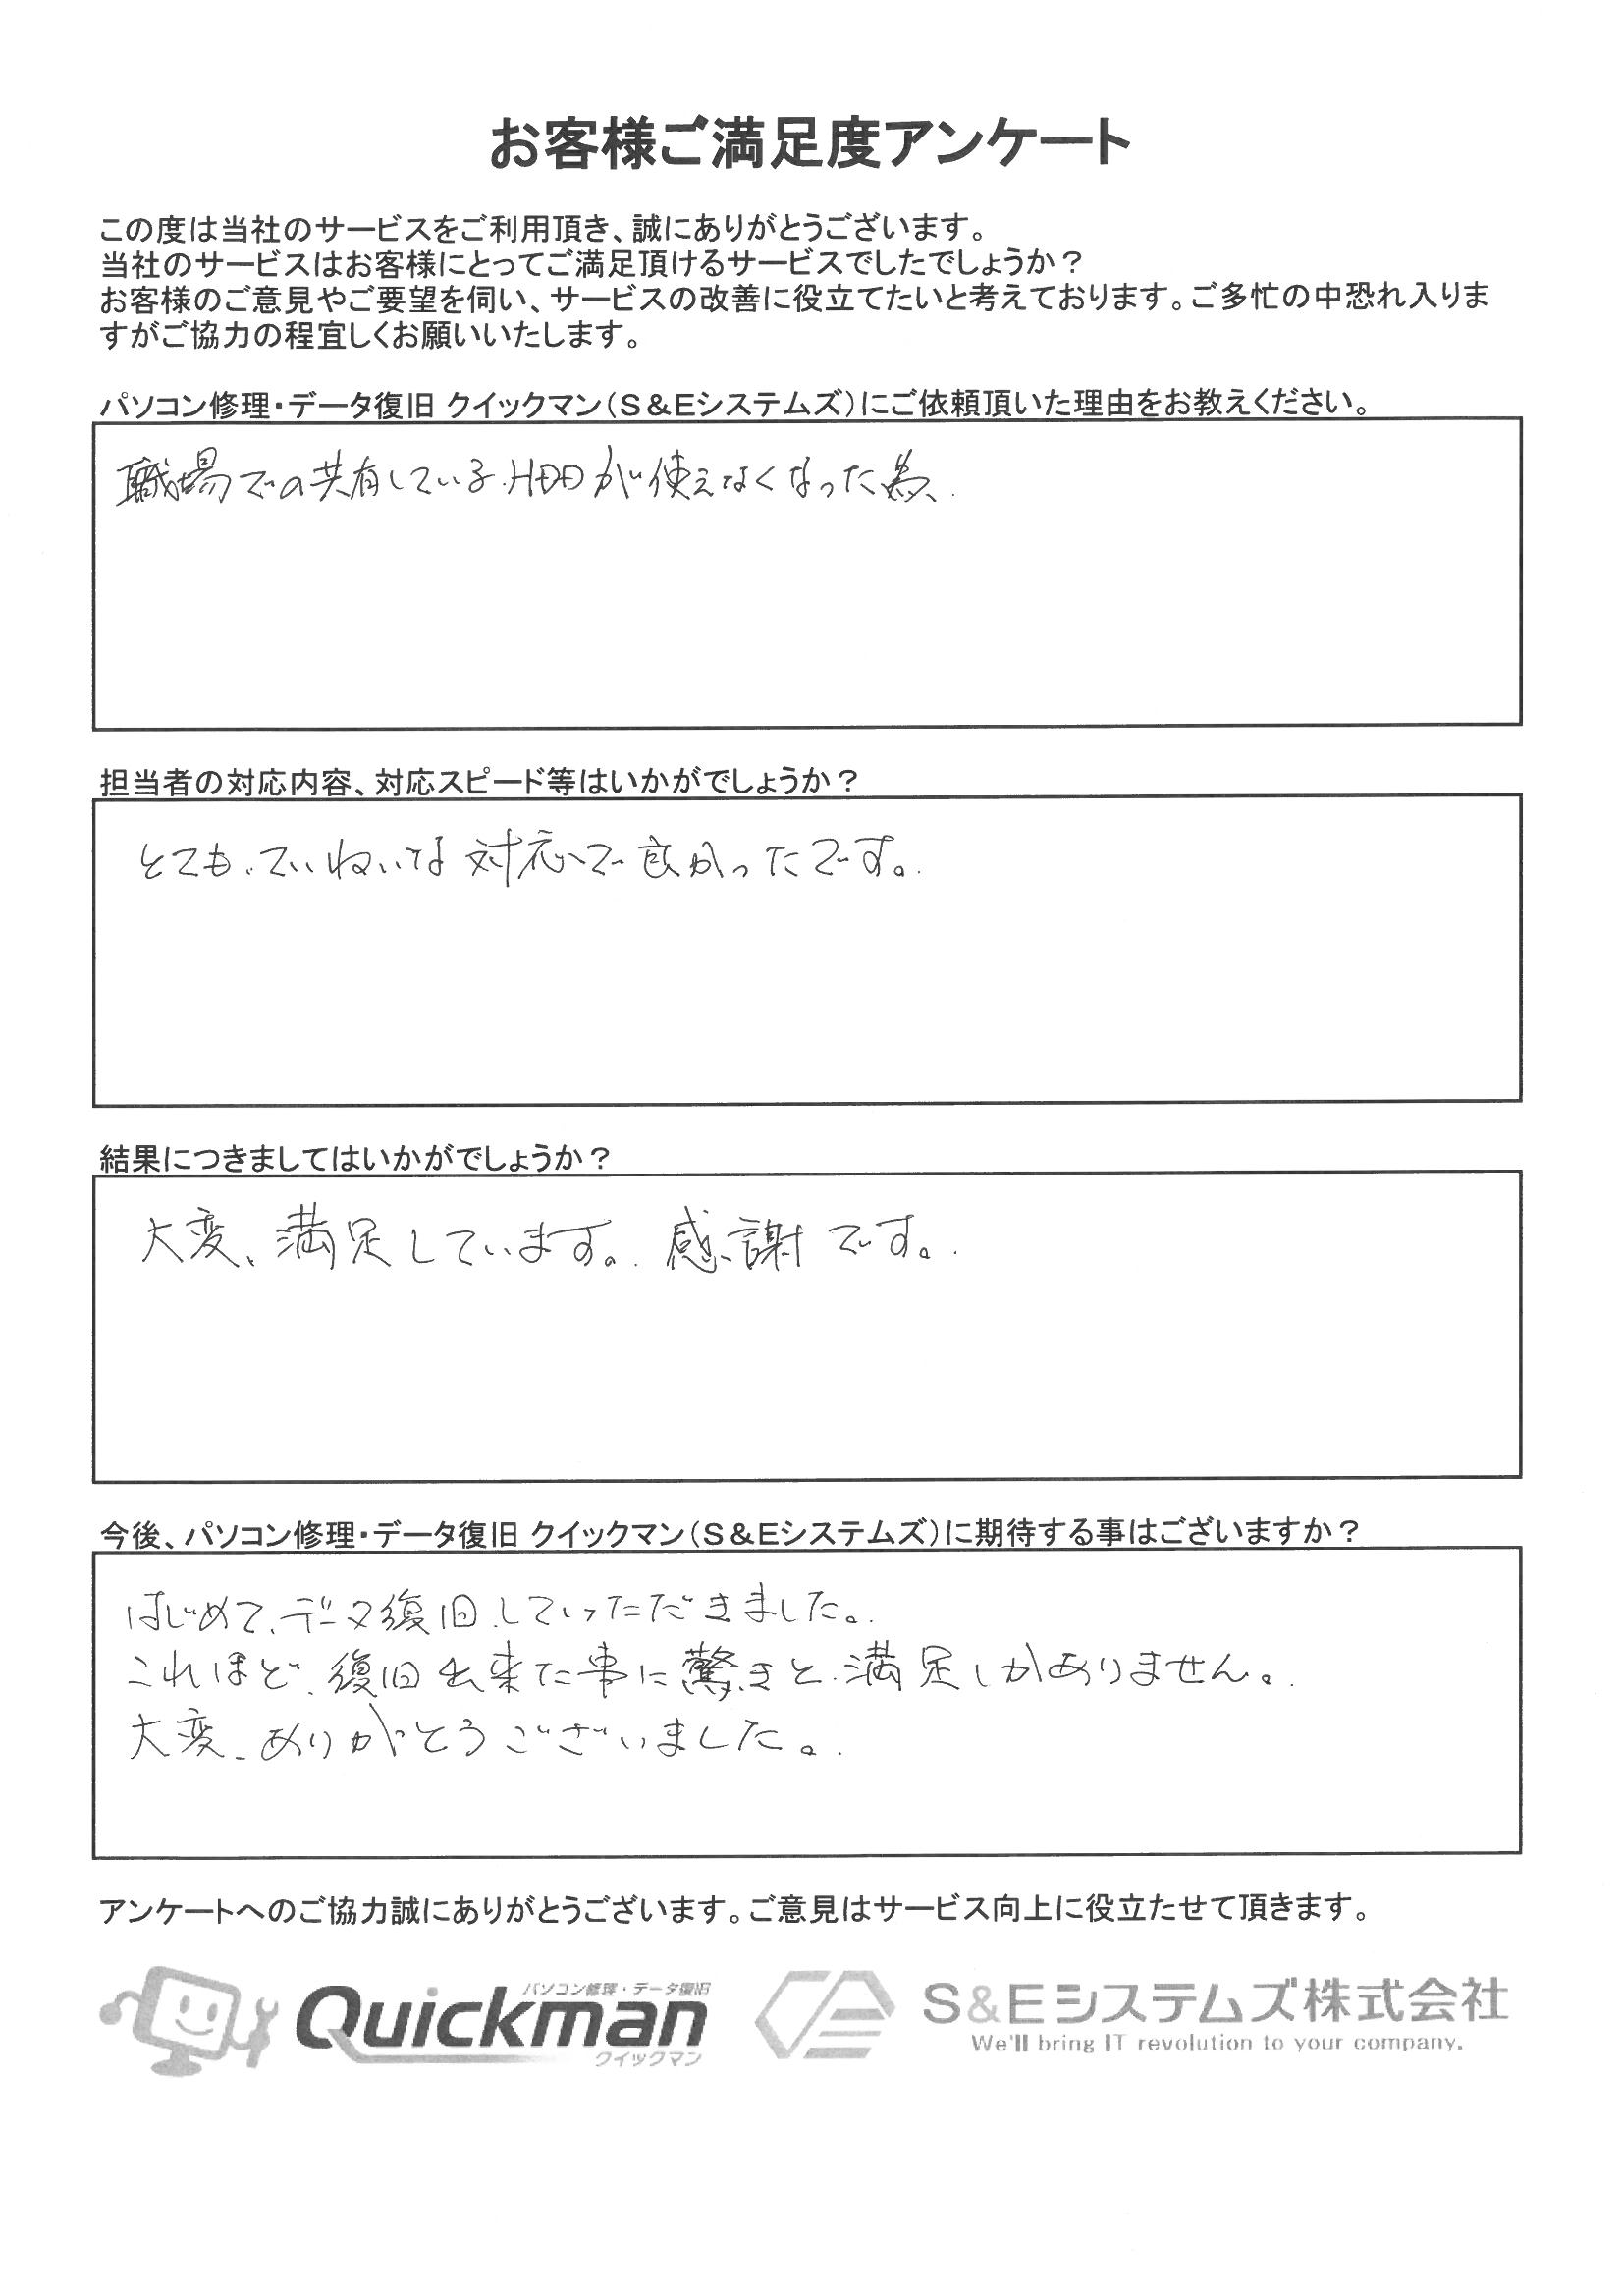 お客様ご満足度アンケート
この度は当社のサービスをご利用頂き、誠にありがとうございます。
当社のサービスはお客様にとってご満足頂けるサービスでしたでしょうか？
お客様のご意見やご要望を伺い、サービスの改善に役立てたいと考えております。ご多忙の中恐れ入りま
すがご協力の程宜しくお願いいたします。
パソコン修理・データ復旧 クイックマン（S＆Eシステムズ）にご依頼頂いた理由をお教えください。
職場での共有しているHDDが使えなくなった為、
担当者の対応内容、対応スピード等はいかがでしょうか？
とても、ていねいな対応で良かったです。
結果につきましてはいかがでしょうか？
大変、満足しています。感謝です。
今後、パソコン修理・データ復旧 クイックマン（S＆Eシステムズ）に期待する事はございますか？
はじめて、データ復旧していただきました。
これほど、復旧出来た事に驚きと満足しかありません。
大変、ありがとうございました。
アンケートへのご協力誠にありがとうございます。ご意見はサービス向上に役立たせて頂きます。
パソコン修理・データ復旧
Quickman
クイックマン
S&Eシステムズ株式会社
We'll bring IT revolution to your company.